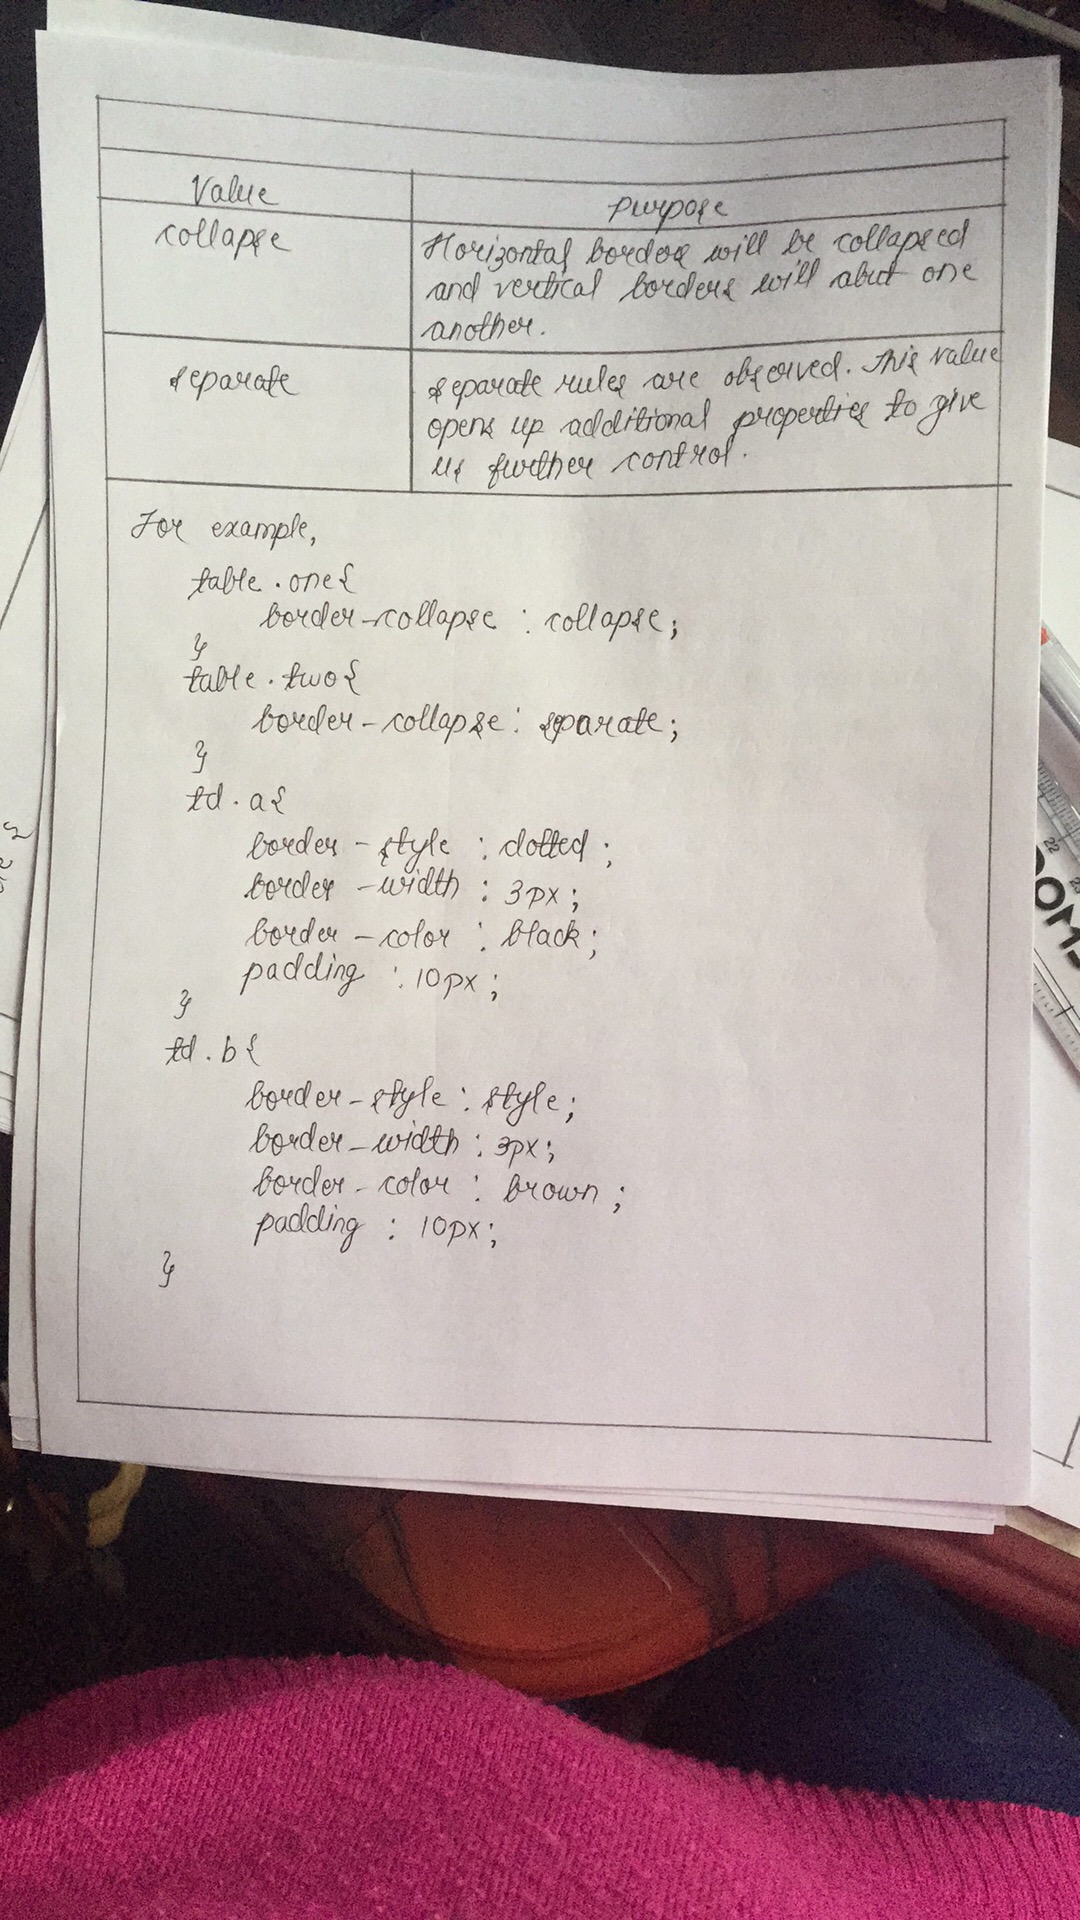 Value purpose
collapse Horizontal borders will be collapsed
and vertical borders will abut one
another.
separate separate rules are observed. This value
opens up additional properties to give
us further control.
For example,
table.one{
border-collapse : collapse;
}
table.two{
border-collapse : separate;
}
td.a{
border-style : dotted;
border-width : 3px;
border-color : black;
padding : 10px;
}
td.b{
border-style : style;
border-width : 3px;
border-color : brown;
padding : 10px;
}
22